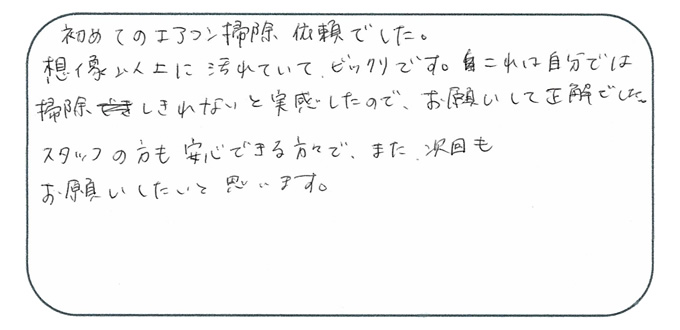 初めてのエアコン掃除 依頼でした。
想像以上に汚れていて、ビックリです。これは自分では
掃除しきれないと実感したので、お願いして正解でした。
スタッフの方も安心できる方々で、また、次回も
お願いしたいと思います。